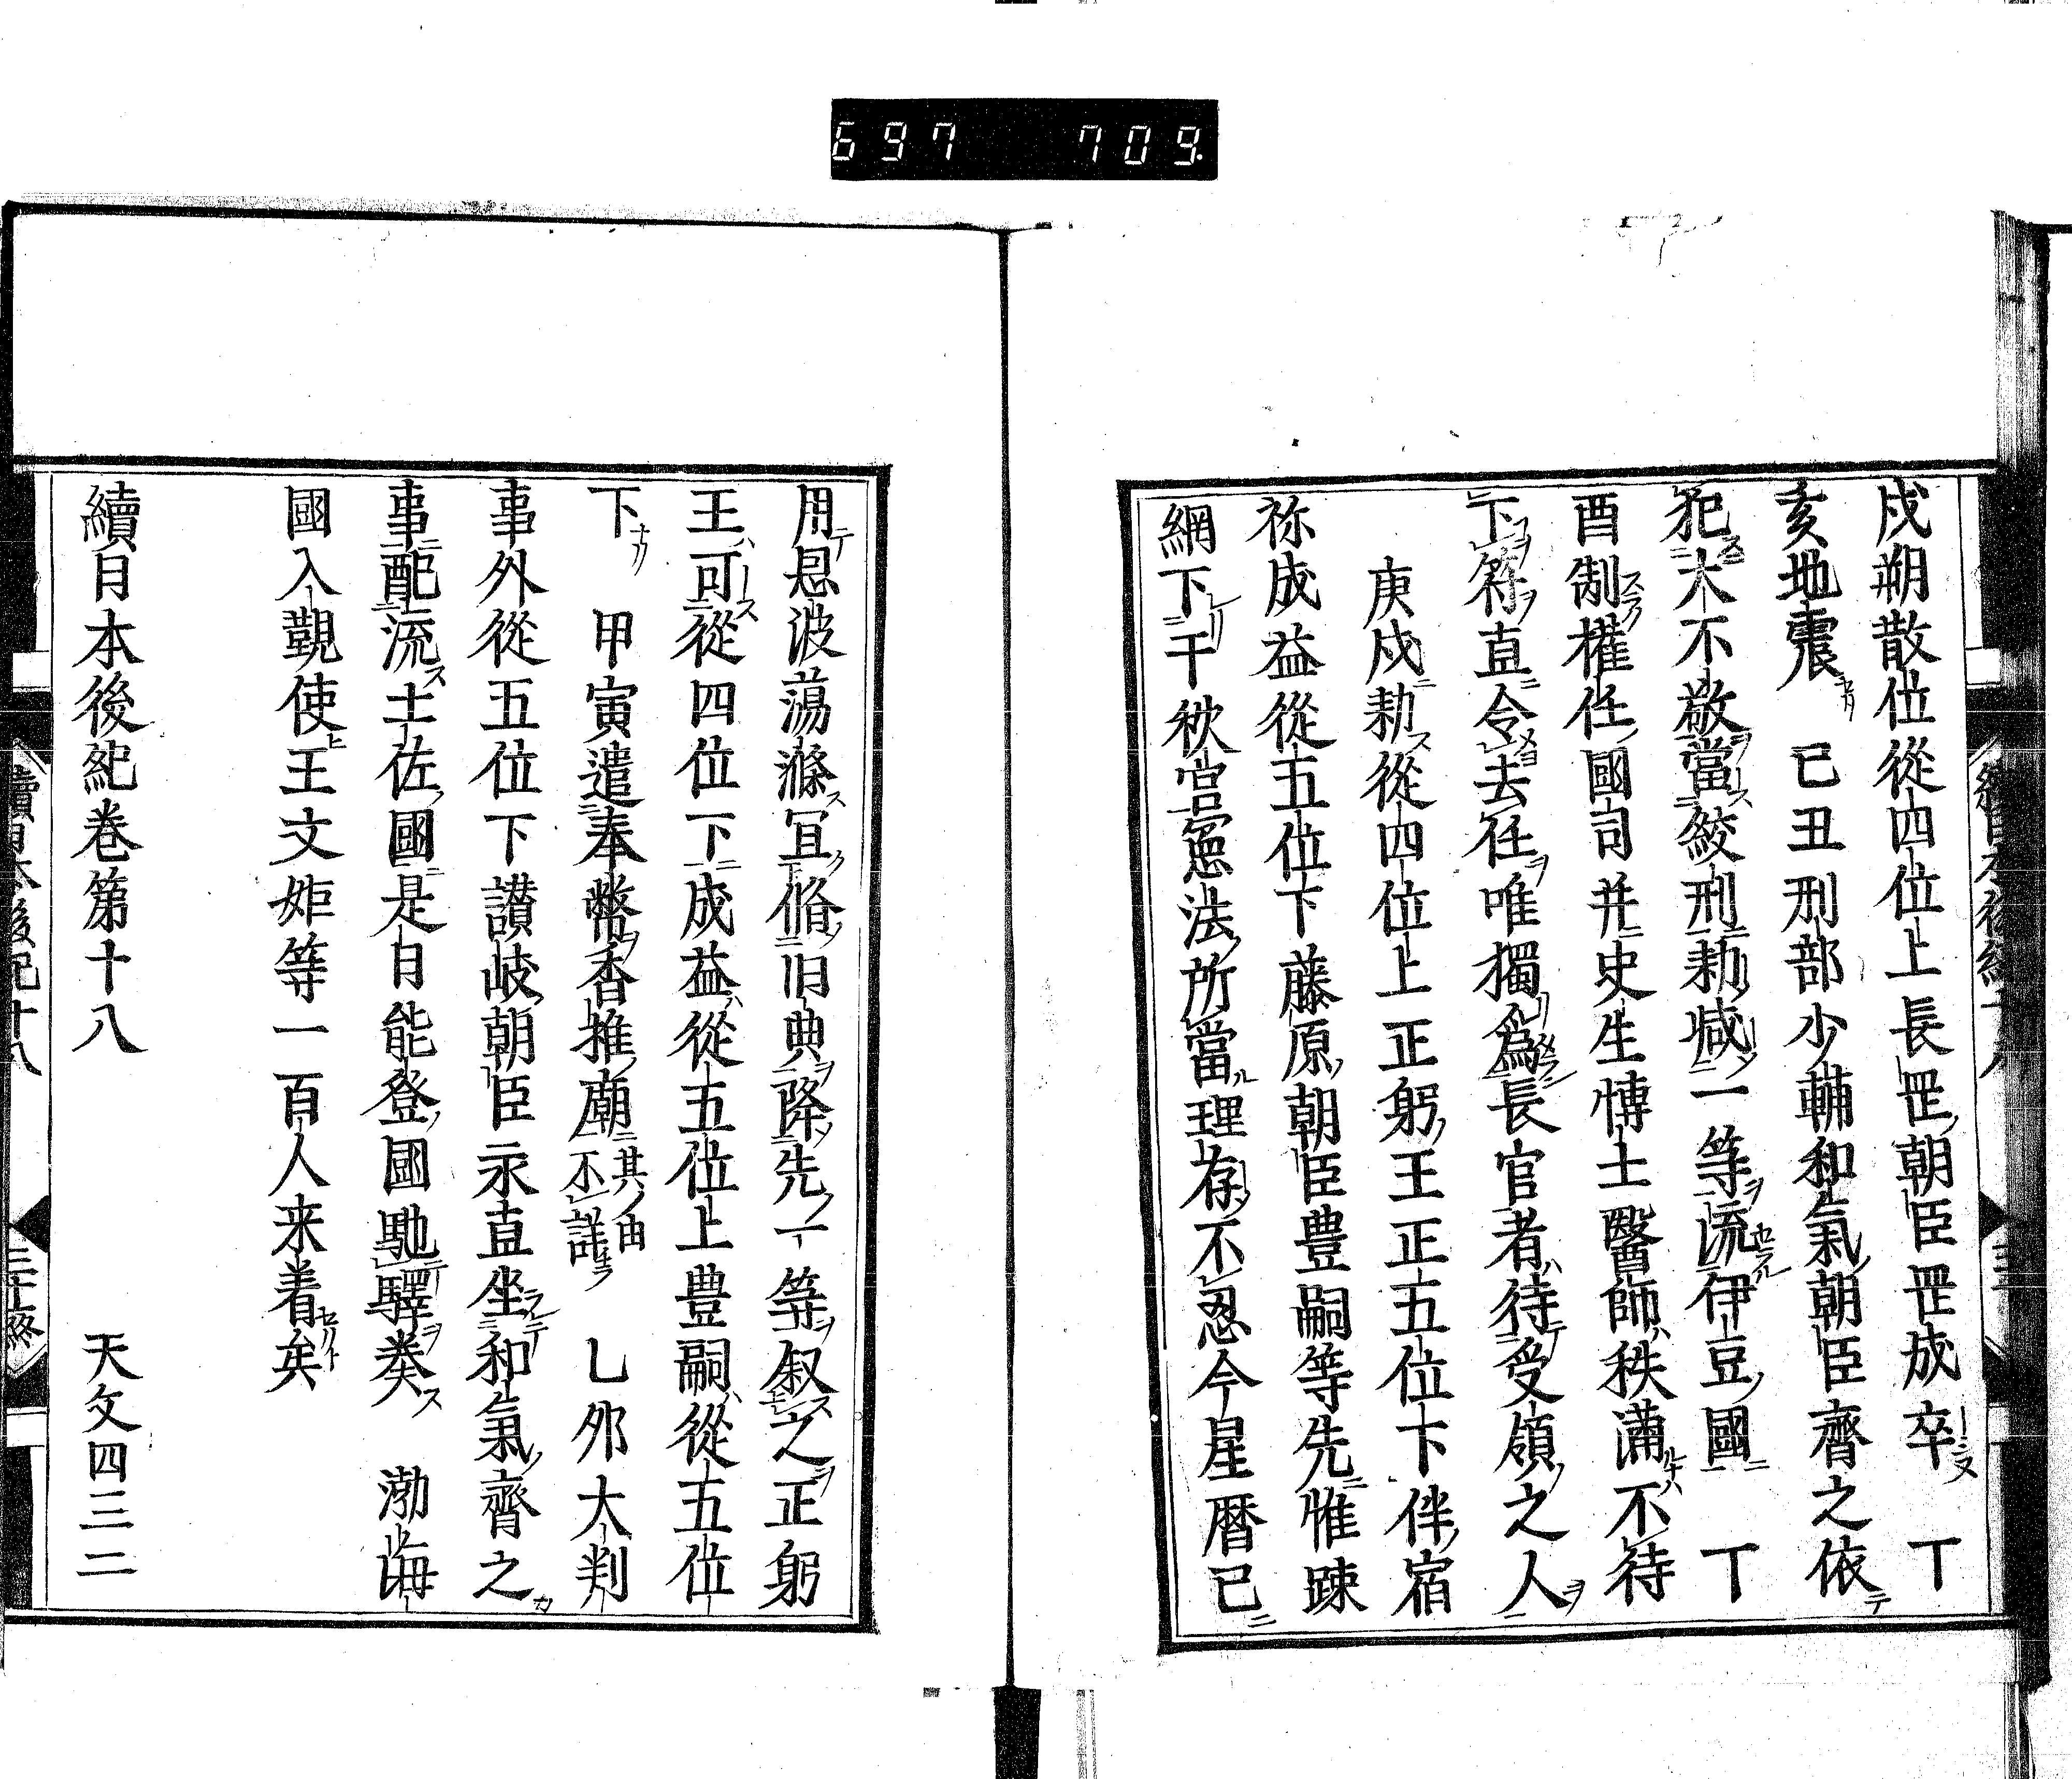 697 709
戌朔散位從四位上長罡朝臣罡成卒 丁
亥地震 己丑刑部少輔和氣朝臣齊之依
犯大不敬當絞刑勅减一等流伊豆國 丁
酉制權任國司并史生博士醫師秩滿不待
下符直令去任唯獨爲長官者待受領之人
庚戌勅從四位上正躬王正五位下伴宿
祢成益從五位下藤原朝臣豊嗣等先惟踈
網下干秋官憲法所當理存不忍今星暦已
用恩波蕩滌冝脩旧典降先一等叙之正躬
王可從四位下成益從五位上豊嗣從五位
下 甲寅遣奉幣香推廟其由不詳 乙夘大判
事外從五位下讃岐朝臣永直坐和氣齊之
事配流土佐國是日能登國馳驛奏 渤海
國入覲使王文矩等一百人来着矣
續日本後紀卷第十八 天文四三二
續日本後紀十八